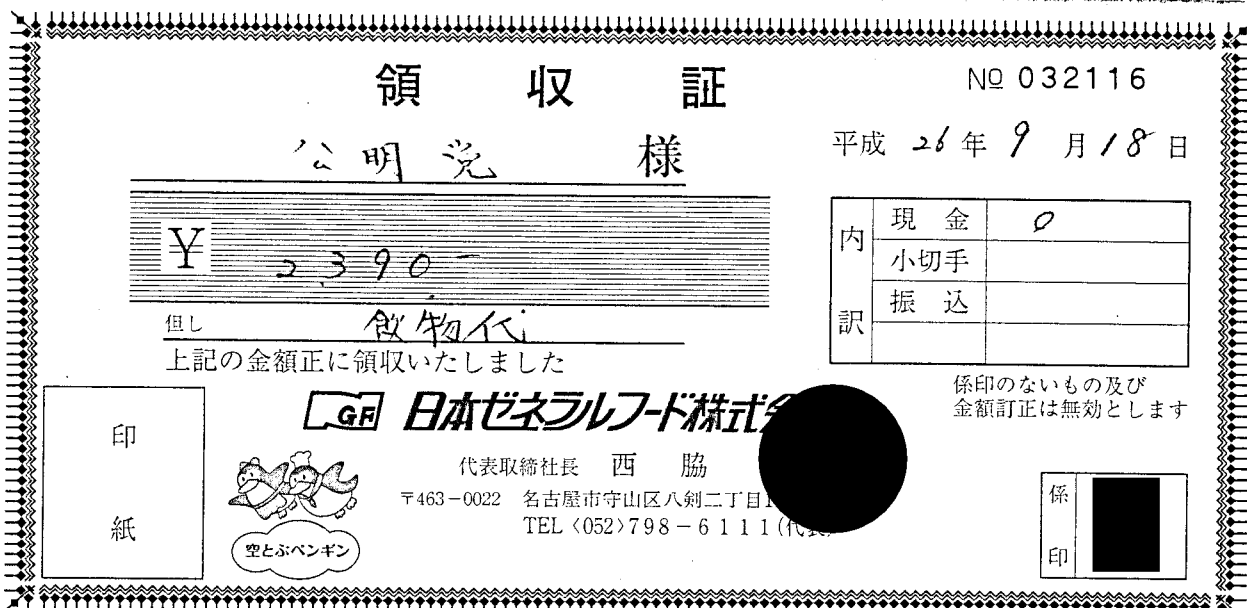 領収証
№ 032116
公明党 様
平成 26年 9月 18日
¥ 2,390-
但し 飲物代
上記の金額正に領収いたしました
内訳
現金 0
小切手
振込
係印のないもの及び
金額訂正は無効とします
印紙
GF 日本ゼネラルフード株式会
代表取締社長 西脇
〒463-0022 名古屋市守山区八剣二丁目1
TEL〈052〉798-6111(代表)
空とぶペンギン
係印